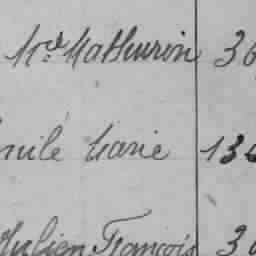 Mathurin 36
Emile Marie 13
Julien François 3